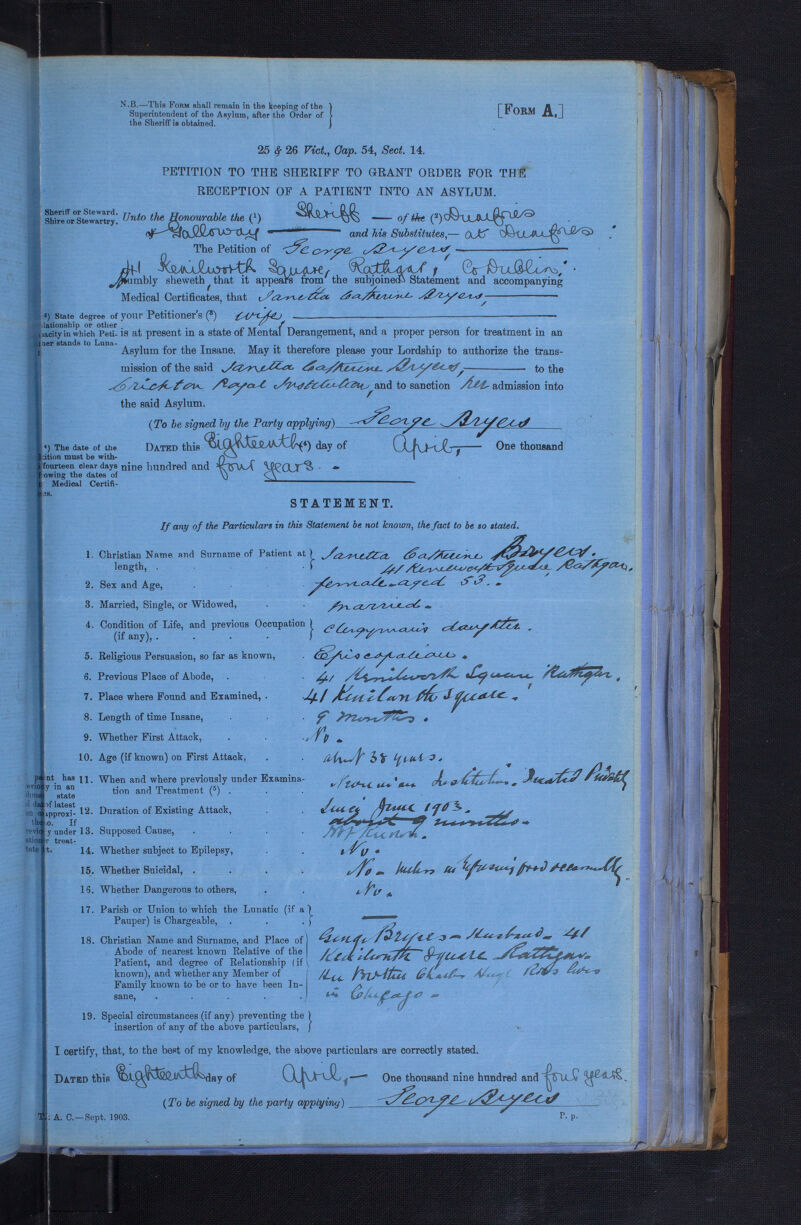 N.B.—This Form shall remain in the keeping of the
Superintendent of the Asylum, after the Order of
the Sheriff is obtained.
[Form A.]
25 & 26 Vict., Cap. 54, Sect. 14.
PETITION TO THE SHERIFF TO GRANT ORDER FOR THE
RECEPTION OF A PATIENT INTO AN ASYLUM.
Sheriff or Steward.
Shire or Stewartry.
Unto the Honourable the (1) Sheriff — of the (2) Dumfries
& Galloway — and his Substitutes,— at Dumfries :
The Petition of George Bryers,
41 Kenilworth Square, Rathgar, Co Dublin,
Humbly sheweth, that it appears from the subjoined Statement and accompanying
Medical Certificates, that Janetta Catherine Bryers,
(3) State degree of
lationship or other
pacity in which Peti-
ner stands to Luna-
your Petitioner's (3) wife,
is at present in a state of Mental Derangement, and a proper person for treatment in an
Asylum for the Insane. May it therefore please your Lordship to authorize the trans-
mission of the said Janetta Catherine Bryers, — to the
Crichton Royal Institution, and to sanction her admission into
the said Asylum.
(To be signed by the Party applying) George Bryers
(4) The date of the
ition must be with-
fourteen clear days
owing the dates of
Medical Certifi-
es.
Dated this Eighteenth (4) day of April, — One thousand
nine hundred and four years. -
STATEMENT.
If any of the Particulars in this Statement be not known, the fact to be so stated.
1. Christian Name and Surname of Patient at length, . . Janetta Catherine Bryers.
41 Kenilworth Square, Rathgar.
2. Sex and Age, . . female - aged 53. -
3. Married, Single, or Widowed, . . married -
4. Condition of Life, and previous Occupation (if any), . . . . clergyman's daughter.
5. Religious Persuasion, so far as known, . Episcopalian.
6. Previous Place of Abode, . . 41 Kenilworth Square Rathgar.
7. Place where Found and Examined, . 41 Kenilworth Square.
8. Length of time Insane, . . . 9 months.
9. Whether First Attack, . . . No -
10. Age (if known) on First Attack, . . about 38 years.
11. When and where previously under Examina-
tion and Treatment (5) . . Institution. Treated Privately
12. Duration of Existing Attack, . . Since June 1903.
about 9 months -
13. Supposed Cause, . . . . Not Known.
14. Whether subject to Epilepsy, . . No.
15. Whether Suicidal, . . . . No - unless in refusing food occasionally
16. Whether Dangerous to others, . . No.
17. Parish or Union to which the Lunatic (if a
Pauper) is Chargeable, . . . —
18. Christian Name and Surname, and Place of
Abode of nearest known Relative of the
Patient, and degree of Relationship (if
known), and whether any Member of
Family known to be or to have been In-
sane, . . . . . .
George Bryers - Husband - 41
Kenilworth Square Rathgar -
Her Brother Charles Ross lives
in Chicago -
19. Special circumstances (if any) preventing the
insertion of any of the above particulars,
I certify, that, to the best of my knowledge, the above particulars are correctly stated.
Dated this Eighteenth day of April, — One thousand nine hundred and four years.
(To be signed by the party applying) George Bryers
A. C.—Sept. 1903.
P. p.